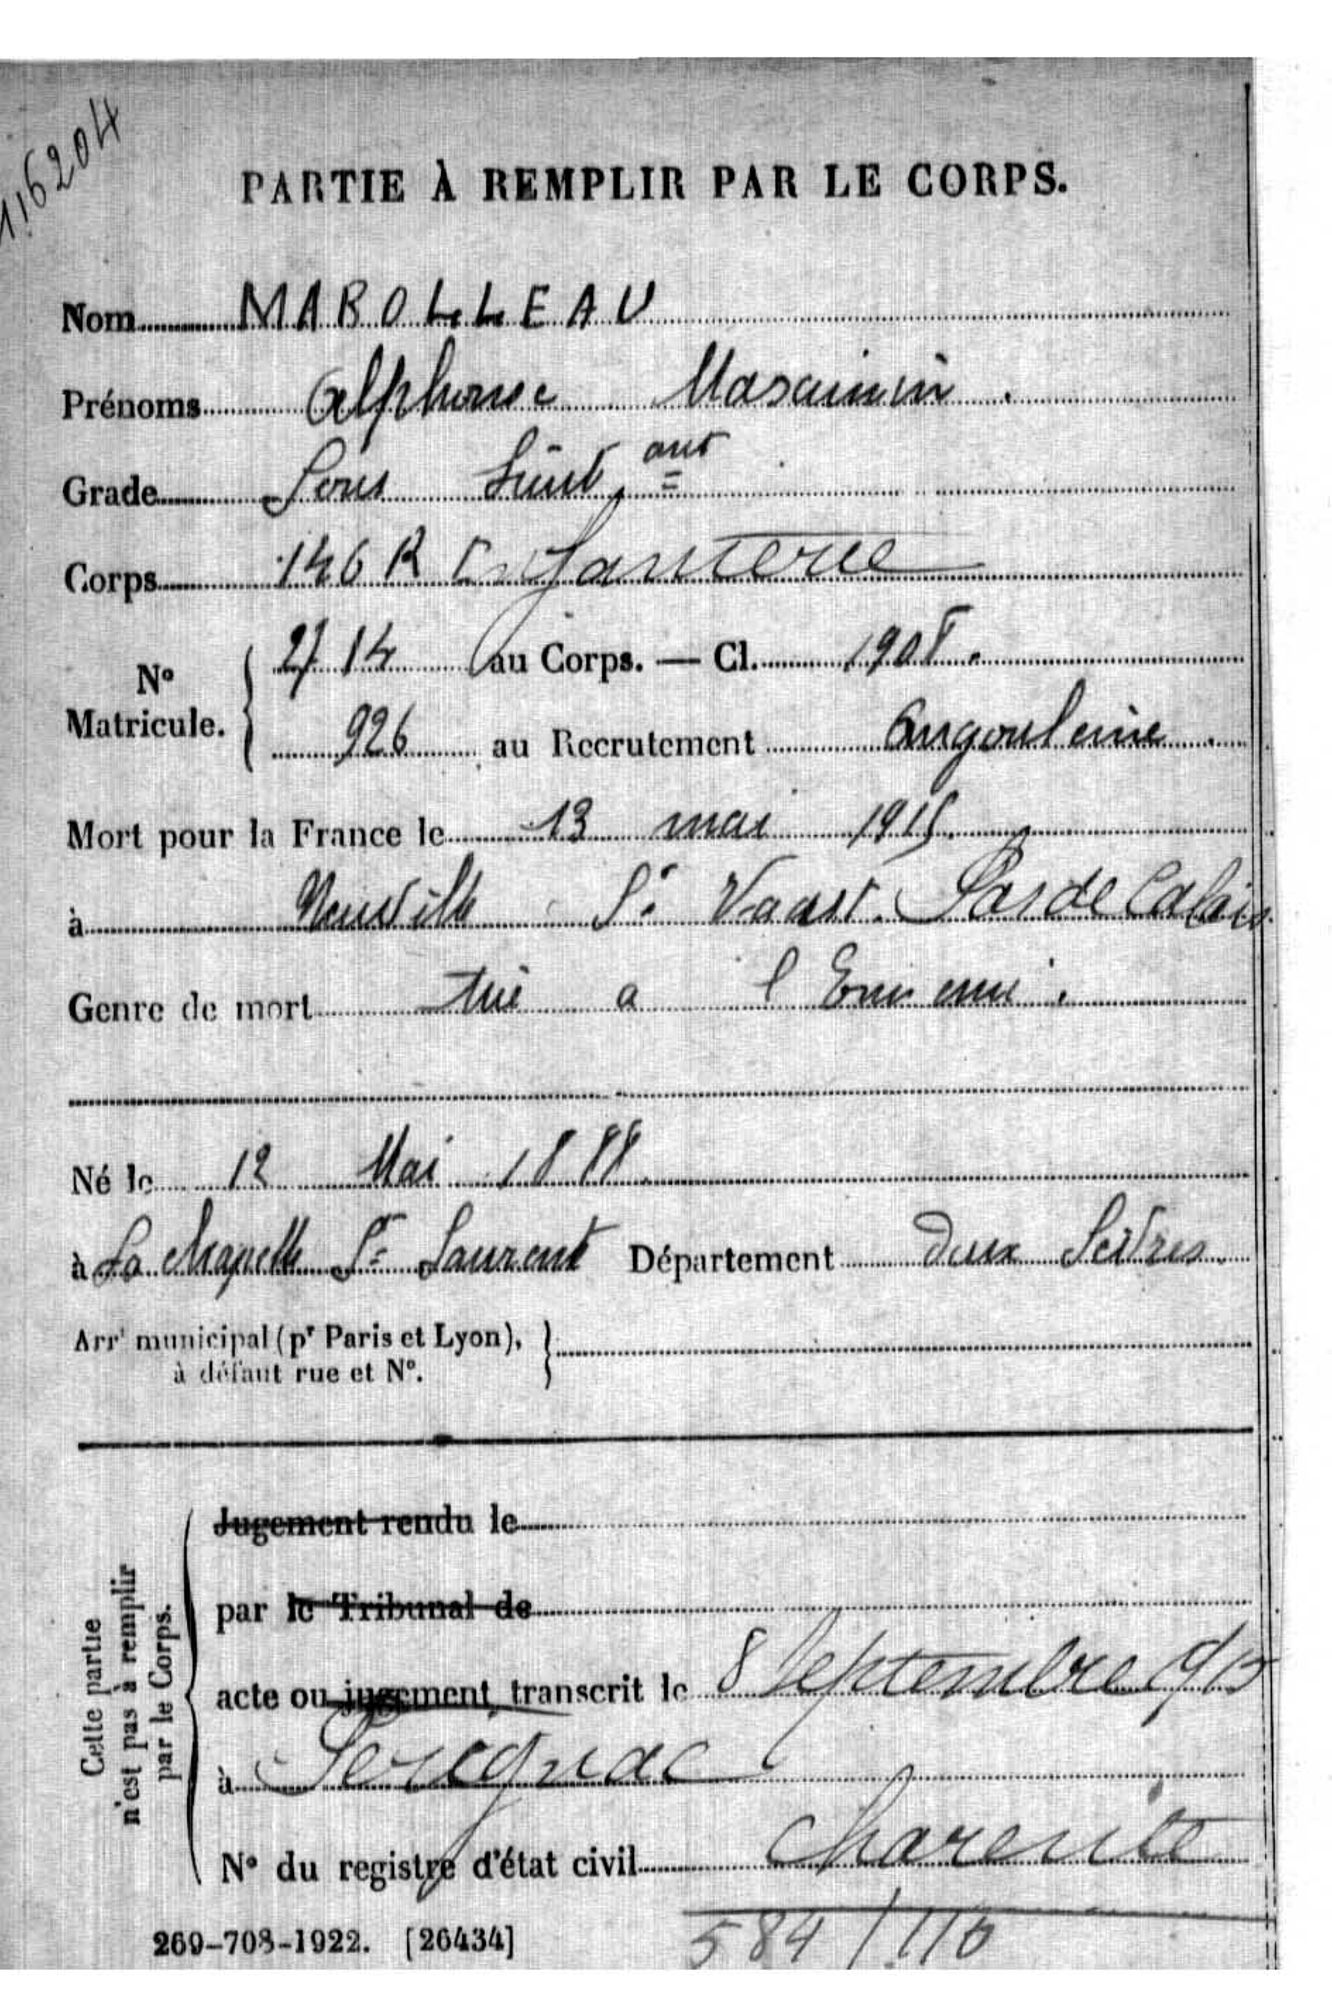 116204
PARTIE À REMPLIR PAR LE CORPS.
Nom MAROLLEAU
Prénoms Alphonse
Grade Sous Lieut ant
Corps 146 R Infanterie
2714 au Corps. — Cl. 1908.
N° Matricule.
926 au Recrutement Angouleme.
Mort pour la France le 13 mai 1915.
à Neuville St Vaast. Pas de Calais
Genre de mort tué a l Ennemi.
Né le 12 Mai 1888
à La Chapelle St Laurent Département Deux Sèvres.
Arrt municipal (pr Paris et Lyon),
à défaut rue et N°.
Cette partie
n'est pas à remplir
par le Corps.
Jugement rendu le
par le Tribunal de
acte ou jugement transcrit le 8 Septembre 915
à Serignac
N° du registre d'état civil Charente
269-708-1922. [26434]